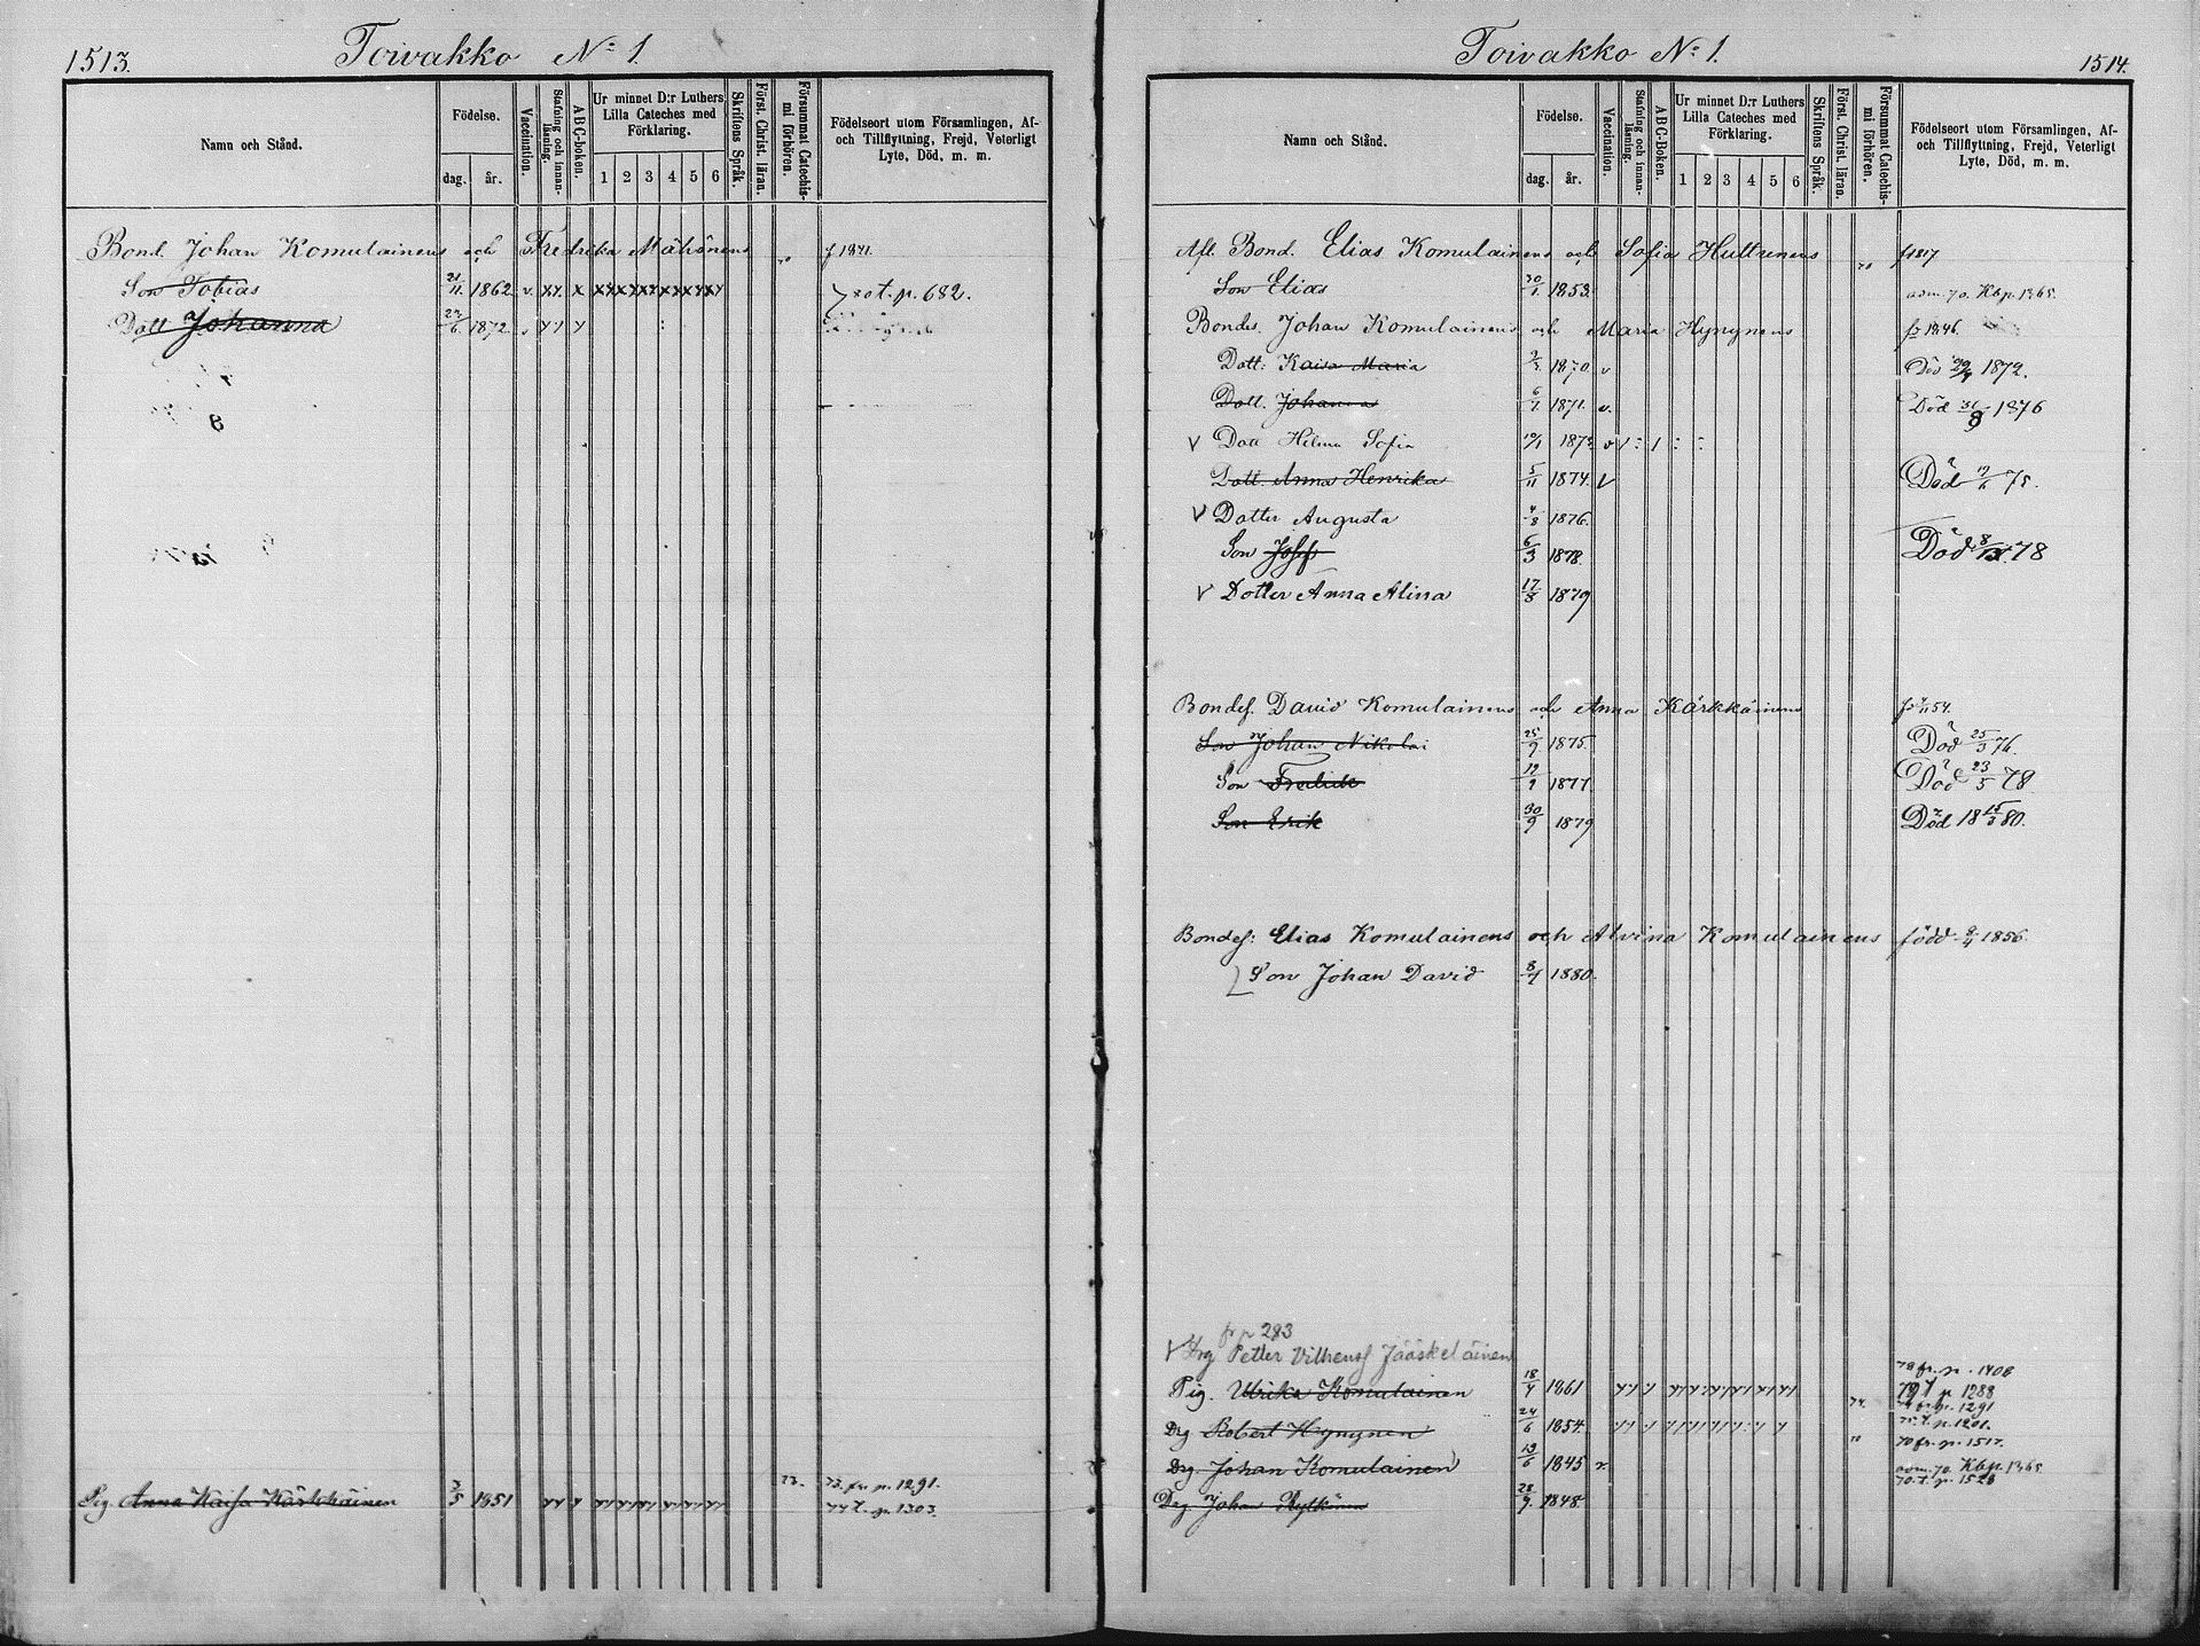 1513.
Toivakko No 1.
Namn och Stånd.
Födelse.
dag.
år.
Vaccination.
Stafning och innanläsning.
ABC-boken.
Ur minnet D:r Luthers Lilla Cateches med Förklaring.
1 2 3 4 5 6
Skriftens Språk.
Först. Christ. läran.
Försummat Catechismi förhören.
Födelseort utom Församlingen, Af- och Tillflyttning, Frejd, Veterligt Lyte, Död, m. m.
Bond. Johan Komulainens och Fredrika Mähönens f 1841.
Son Tobias 21/11 1862. v. 80 t. p. 682.
Dott Johanna 1872.
Pig. Anna Kaisa Kärkkäinen 3/5 1851 73. 73. fr. p. 1291.
77 t. p. 1303.
Toivakko No 1.
1514.
Namn och Stånd.
Födelse.
dag.
år.
Vaccination.
Stafning och innanläsning.
ABC-Boken.
Ur minnet D:r Luthers Lilla Cateches med Förklaring.
1 2 3 4 5 6
Skriftens Språk.
Först. Christ. läran.
Försummat Catechismi förhören.
Födelseort utom Församlingen, Af- och Tillflyttning, Frejd, Veterligt Lyte, Död, m. m.
Afl. Bond. Elias Komulainens och Sofia Huttunens f 1817
Son Elias 30/1 1853. adm. 70. Kbp. 1365.
Bondes. Johan Komulainens och Maria Hynynens 1846.
Dott: Kaisa Maria 1870. v Död 1872.
Dott. Johanna 6/1 1871. v. Död 31/8 1876
v Dott Hilma Sofia
Dott. Anna Henrika 5/11 1874. v Död 75.
v Dotter Augusta 4/8 1876.
Son Josef 6/3 1878. Död 78
v Dotter Anna Alina 17/8 1879
Bondes. David Komulainens och Anna Kärkkäinens 54.
Son Johan Nikolai 25/9 1875. Död 25/3 76.
Son Fredrik 1877 Död 23/5 78.
Son Erik 30/9 1879 Död 18 15/3 80.
Bondes: Elias Komulainens och Alvina Komulainens född 1856.
Son Johan David 1880.
fr p 283
v Drg Petter Vilhemsf Jääskeläinen
78 fr. p. 1408
Pig. Ulrika Komulainen 18/4 1861 79 t p 1288
74. 74 fr. p. 1291
Drg Robert Hynynen 24/6 1854. 75. t. p. 1201.
70 fr. p. 1517.
Drg. Johan Komulainen 19/6 1845 v. adm. 70. Kbp. 1365.
70. t. p. 1528
Drg. Johan Rytkönen 28/9. 1848.